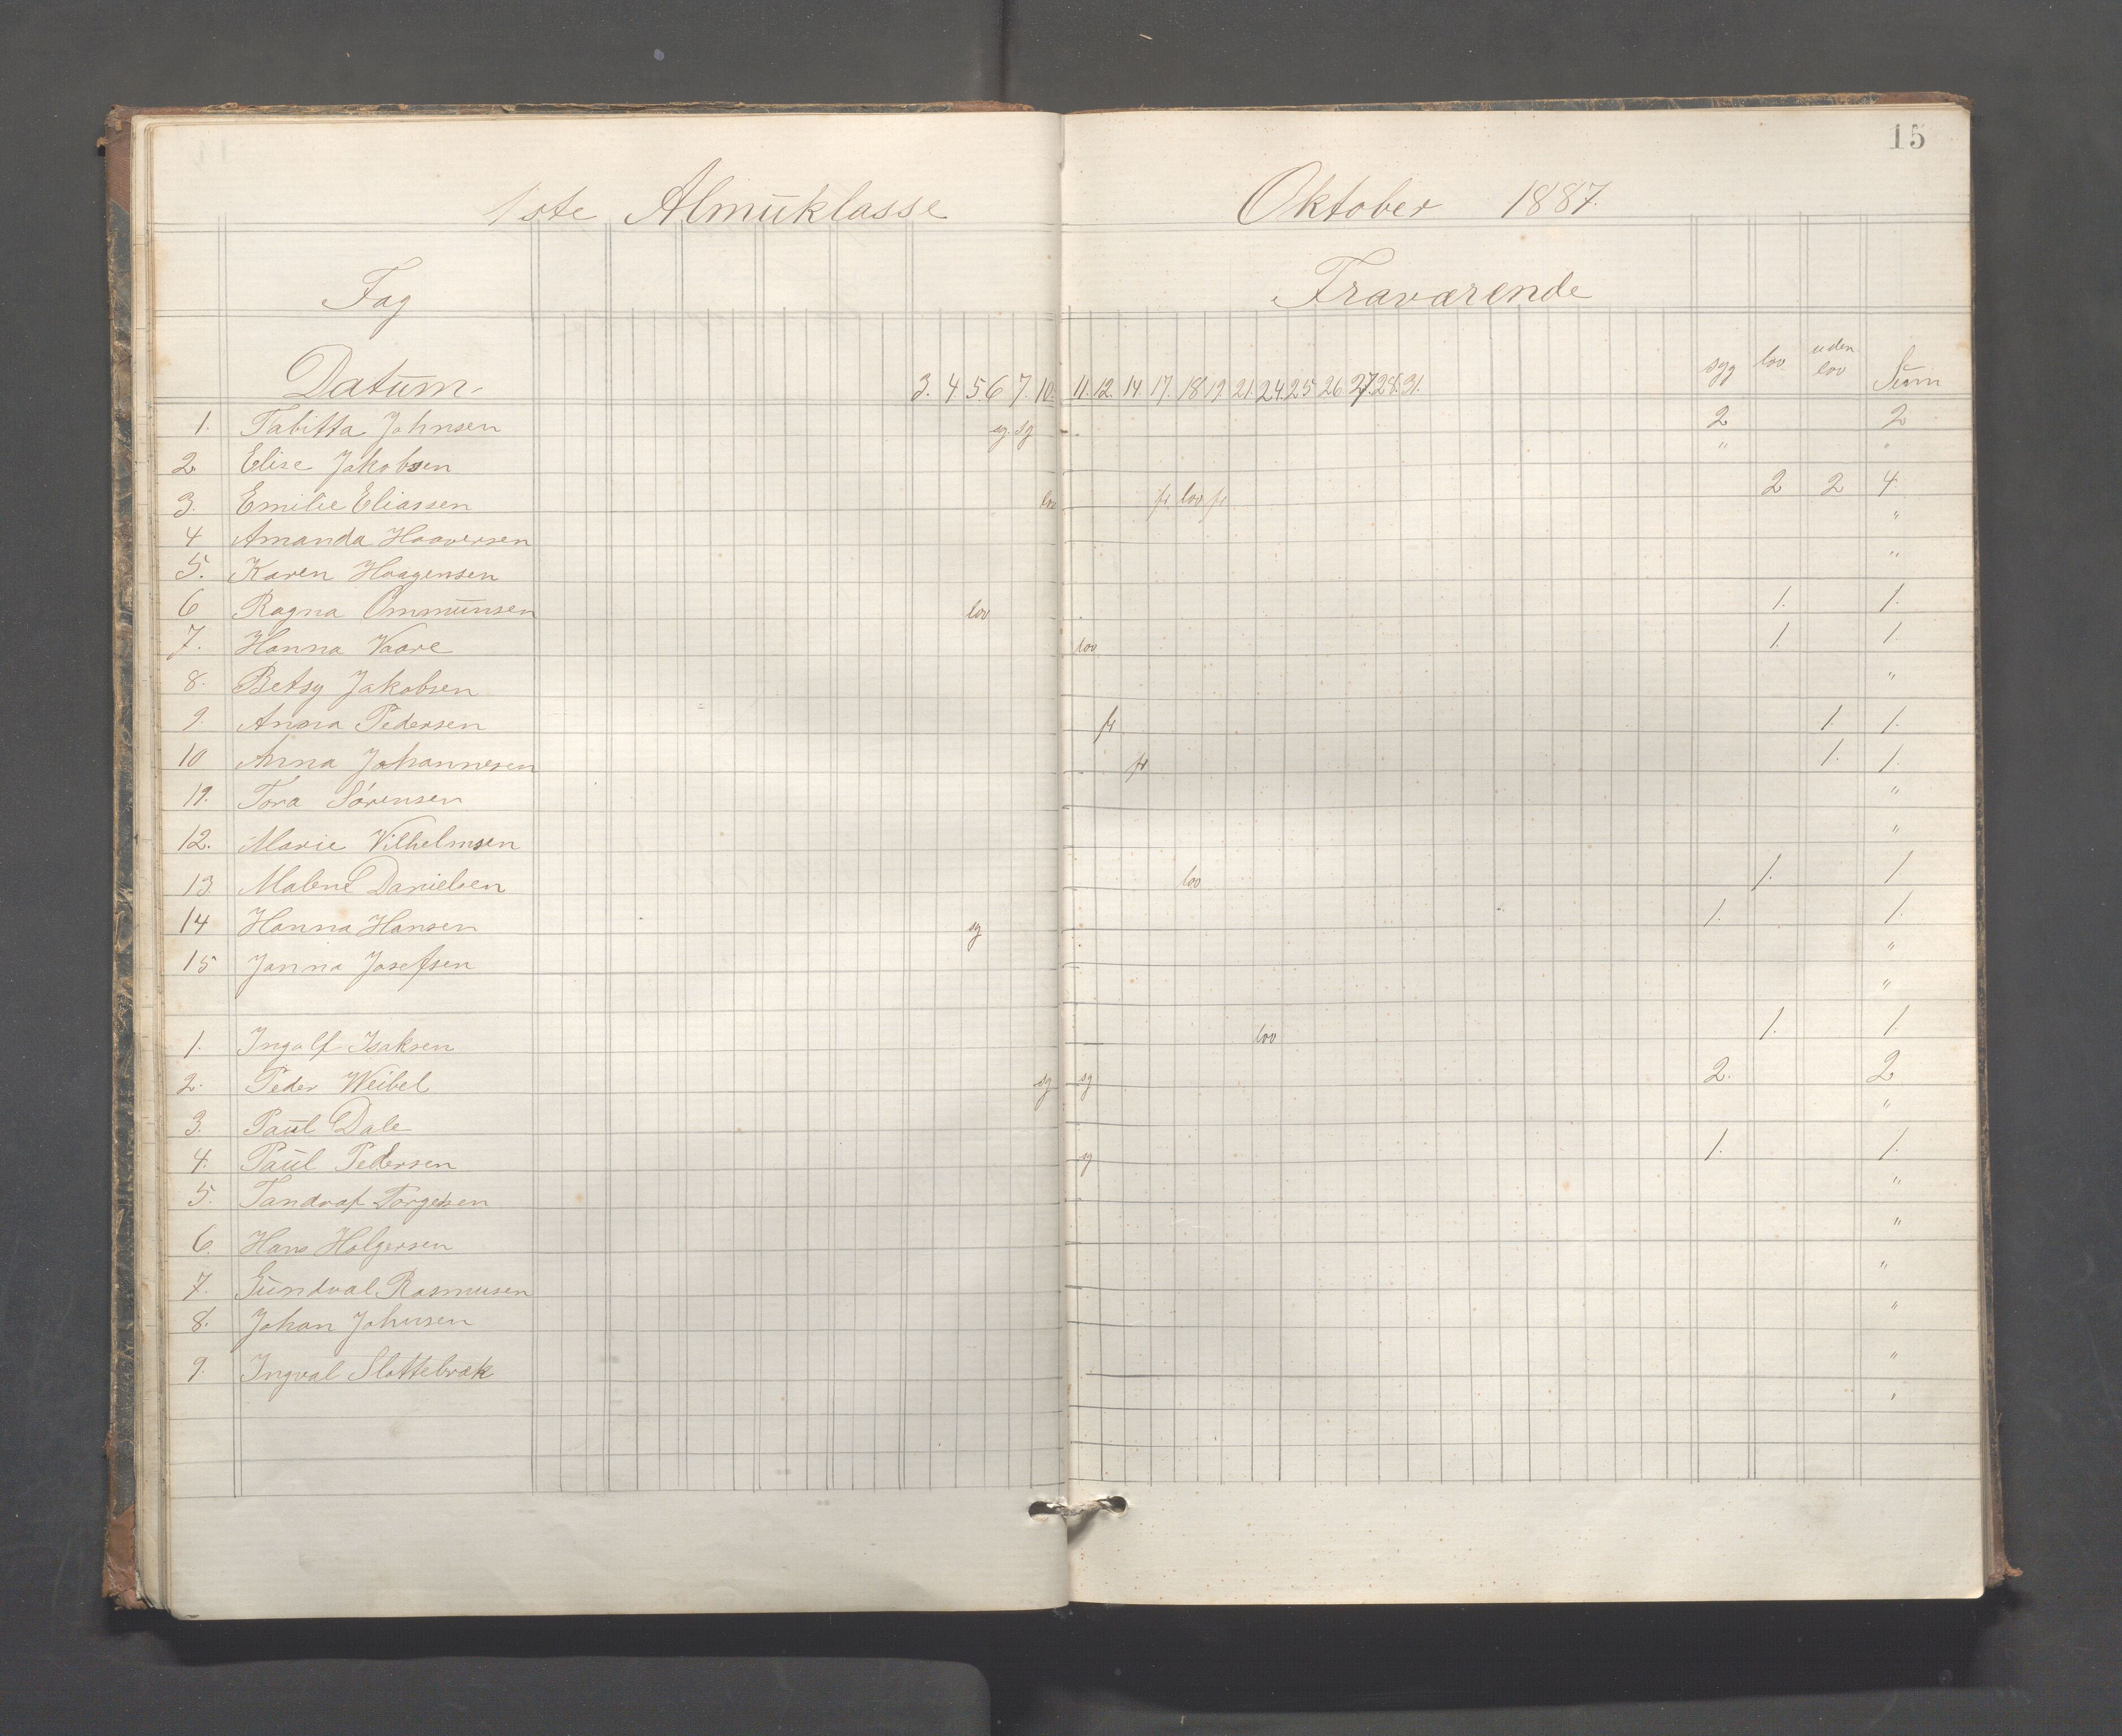 15
1ste Almuklasse Oktober 1887.
Fag Fraværende
Datum. 3. 4 5. 6 7. 10. 11. 12. 14. 17. 18. 19. 21. 24. 25 26. 27. 28. 31. syg lov uden lov Sum
1. Tabitta Johnsen sg. sg 2 2
2. Elise Jakobsen " "
3. Emilie Eliassen lov fr. lov fr. 2 2 4.
4 Amanda Haaversen "
5. Karen Haagensen "
6 Ragna Ommunsen lov 1. 1.
7. Hanna Vaare lov 1. 1.
8. Betsy Jakobsen "
9. Anna Pedersen fr 1 1.
10 Anna Johannesen fr 1. 1.
19. Tora Sørensen "
12. Marie Vilhelmsen "
13 Malene Danielsen lov 1. 1
14 Hanna Hansen sg 1. 1.
15 Janna Josefsen "
"
1. Ingolf Isaksen lov 1. 1.
2. Peder Weibel sg sg 2. 2
3. Paul Dale "
4. Paul Pedersen sg 1. 1.
5. Tandraf Torgersen "
6. Hans Holgersen "
7. Gundval Rasmusen "
8. Johan Johnsen "
9. Ingval Slottebrak "
"